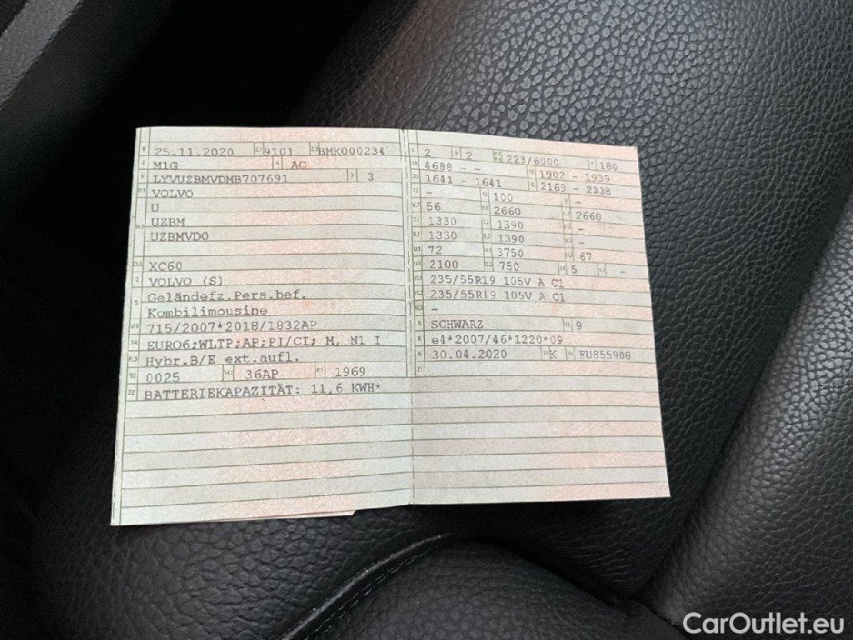 25.11.2020 9101 BMK000234
M1G AC
LYVUZBMVDMB707691 3
VOLVO
U
UZBM
UZBMVD0
XC60
VOLVO (S)
Geländefz.Pers.bef.
Kombilimousine
715/2007*2018/1832AP
EURO6;WLTP;AP;PI/CI; M, N1 I
Hybr.B/E ext.aufl.
0025 36AP 1969
BATTERIEKAPAZITÄT: 11,6 KWH*
2 2 223/6000 180
4688 - - 1902 - 1939
1641 - 1641 2169 - 2338
- 100 -
56 2660 2660
1330 1390 -
1330 1390 -
72 3750 67
2100 750 5 -
235/55R19 105V A C1
235/55R19 105V A C1
-
SCHWARZ 9
e4*2007/46*1220*09
30.04.2020 K FU855908
CarOutlet.eu